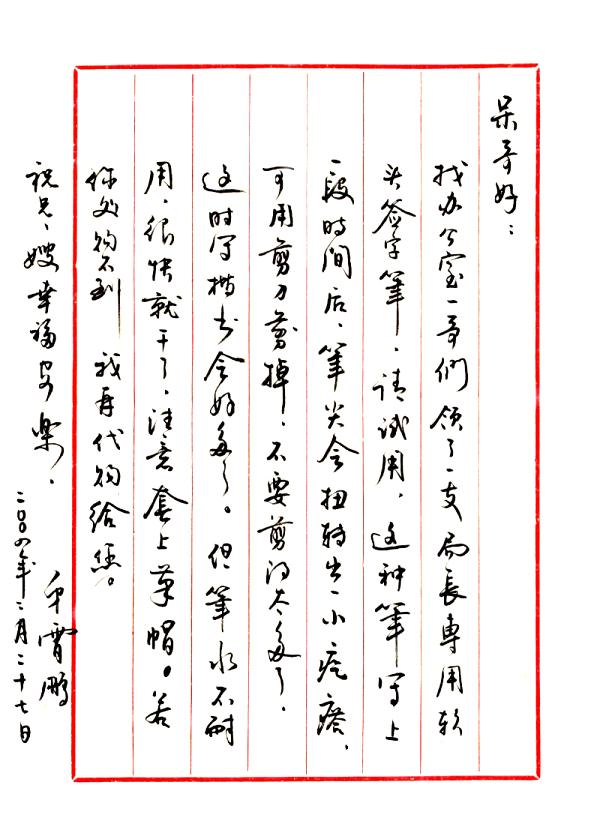 呆哥好：
找办公室一哥们领了一支局長專用软
头签字筆，请试用，这种筆写上
一段时间后，筆尖会扭转出一小疙瘩，
可用剪刀剪掉，不要剪得太多了，
这时写楷书会好多了。但筆水不耐
用，很快就干了，注意套上筆帽。若
你处购不到 我再代购给您。
祝兄、嫂幸福安樂，
霄鹏
二〇〇四年二月二十七日